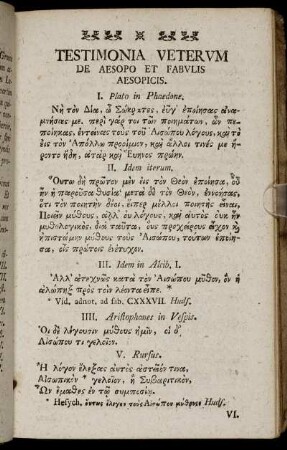 TESTIMONIA VETERVM
DE AESOPO ET FABVLIS
AESOPICIS.
I. Plato in Phædone.
Νὴ τὸν Δία, ὦ Σώκρατες, εὖγ᾽ ἐποίησας ἀνα-
μνήσας με. περὶ γάρ τοι τῶν ποιημάτων, ὧν πε-
ποίηκας, ἐντείνας τοὺς τοῦ Αἰσώπου λόγους, καὶ τὸ
εἰς τὸν Ἀπόλλω προοίμιον, καὶ ἄλλοι τινές με ἤ-
ροντο ἤδη, ἀτὰρ καὶ Εὔηνος πρώην.
II. Idem iterum.
Οὕτω δὴ πρῶτον μὲν εἰς τὸν Θεὸν ἐποίησα, οὗ
ἦν ἡ παροῦσα θυσία· μετὰ δὲ τὸν Θεὸν, ἐννοήσας,
ὅτι τὸν ποιητὴν δέοι, εἴπερ μέλλοι ποιητὴς εἶναι,
Ποιεῖν μύθους, ἀλλ᾽ οὐ λόγους, καὶ αὐτὸς οὐκ ἦν
μυθολογικὸς, διὰ ταῦτα, οὓς προχείρους εἶχον καὶ
ἠπιστάμην μύθους τοὺς Αἰσώπου, τούτων ἐποίη-
σα, οἷς πρώτοις ἐνέτυχον.
III. Idem in Alcib. I.
Ἀλλ᾽ ἀτεχνῶς κατὰ τὸν Αἰσώπου μῦθον, ὃν ἡ
ἀλώπηξ πρὸς τὸν λέοντα εἶπε. *
* Vid. adnot. ad fab. CXXXVII. Huds.
IIII. Aristophanes in Vespis.
Οἱ δὲ λέγουσιν μύθους ἡμῖν, οἱ δ᾽
Αἰσώπου τι γελοῖον.
V. Rursus.
Ἢ λόγον ἔλεξας αὐτὸς ἀστεῖόν τινα,
Αἰσωπικὸν * γελοῖον, ἢ Συβαριτικὸν,
Ὧν ἔμαθες ἐν τῷ συμποσίῳ.
* Hesych. οὕτως ἔλεγον τοὺς Αἰσώπου μύθους Huds.
VI.